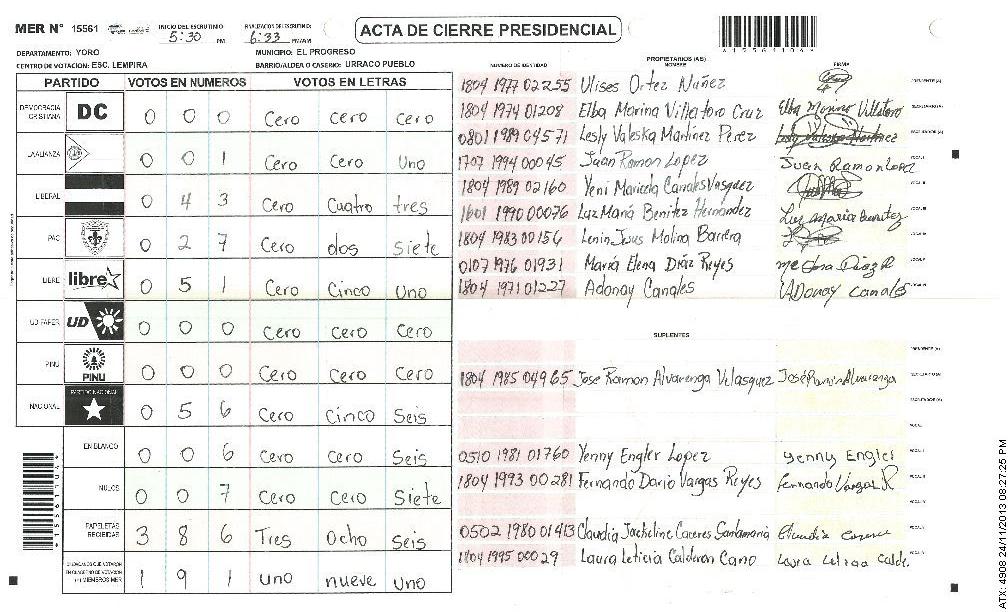 MER N° 15561
INICIO DEL ESCRUTINIO
5:30 PM
FINALIZACION DEL ESCRUTINIO:
6:33 PM/AM
ACTA DE CIERRE PRESIDENCIAL
DEPARTAMENTO: YORO
MUNICIPIO: EL PROGRESO
CENTRO DE VOTACION: ESC. LEMPIRA
BARRIO/ALDEA O CASERIO: URRACO PUEBLO
PARTIDO VOTOS EN NUMEROS VOTOS EN LETRAS
DEMOCRACIA CRISTIANA DC 0 0 0 Cero Cero Cero
LA ALIANZA 0 0 1 Cero Cero Uno
LIBERAL 0 4 3 Cero Cuatro tres
PAC 0 2 7 Cero dos Siete
LIBRE libre 0 5 1 Cero Cinco Uno
UD FAPER UD 0 0 0 Cero Cero Cero
PINU PINU 0 0 0 Cero Cero Cero
NACIONAL PARTIDO NACIONAL 0 5 6 Cero Cinco Seis
EN BLANCO 0 0 6 Cero Cero Seis
NULOS 0 0 7 Cero Cero Siete
PAPELETAS RECIBIDAS 3 8 6 Tres Ocho Seis
CIUDADANOS QUE VOTARON EN CUADERNO DE VOTACION (+) MIEMBROS MER 1 9 1 uno nueve uno
PROPIETARIOS (AS)
NUMERO DE IDENTIDAD NOMBRE FIRMA
1804 1977 02255 Ulises Ortez Nuñez
1804 1974 01208 Elba Marina Villatoro Cruz Elba Marina Villatoro
0801 1989 04571 Lesly Valeska Martinez Perez Lesly Valeska Martinez
1707 1994 00045 Juan Ramon Lopez Juan Ramon Lopez
1804 1989 02160 Yeni Maricela Canales Vasquez
1601 1990 00076 Luz Maria Benitez Hernández Luz Maria Benitez
1804 1983 00156 Lenin Jesus Molina Barrera
0107 1976 01931 María Elena Diaz Reyes
1804 1971 01227 Adonay Canales Adonay Canales
SUPLENTES
1804 1985 04965 Jose Ramon Alvarenga Velasquez José Ramón Alvarenga
0510 1981 01760 Yenny Engler Lopez Yenny Engler
1804 1993 00281 Fernando Dario Vargas Reyes Fernando Vargas R
0502 1980 01413 Claudia Jackeline Caceres Santamaria
1804 1995 00029 Laura Leticia Calderon Cano
ATX: 4908 24/11/2013 08:27:25 PM